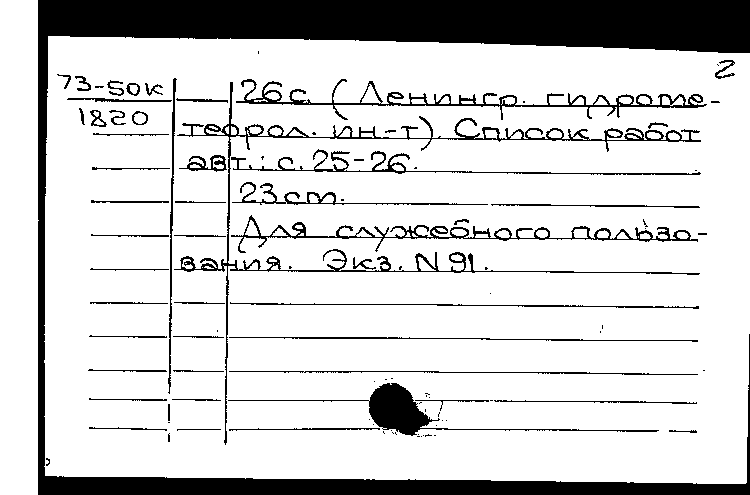 2
73-50к
1820
26с. (Ленингр. гидроме-
теорол. ин-т). Список работ
авт.: с. 25-26.
23 ст.
Для служебного пользо-
вания. Экз. N 91.